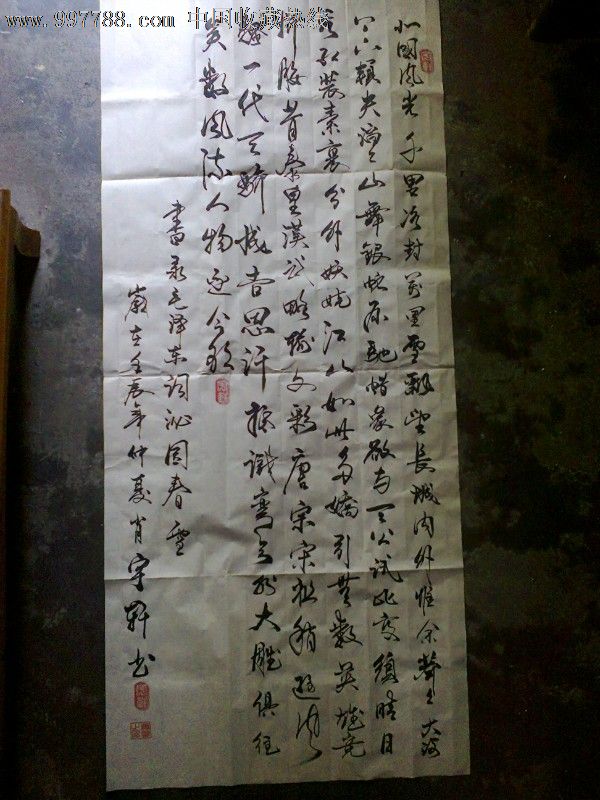 www.997788.com 中国收藏热线
北國风光千里冰封萬里雪飘望長城内外惟余莽々大河
上下頓失滔々山舞銀蛇原馳蜡象欲与天公试比高须晴日
看红装素裹分外妖娆江山如此多嬌引無數英雄竞
折腰昔秦皇漢武略输文彩唐宗宋祖稍遜风
骚一代天骄成吉思汗只識弯弓射大雕俱往
矣數風流人物还今朝
書录毛泽东词沁园春雪
歲在壬辰年仲夏肖宇軒书